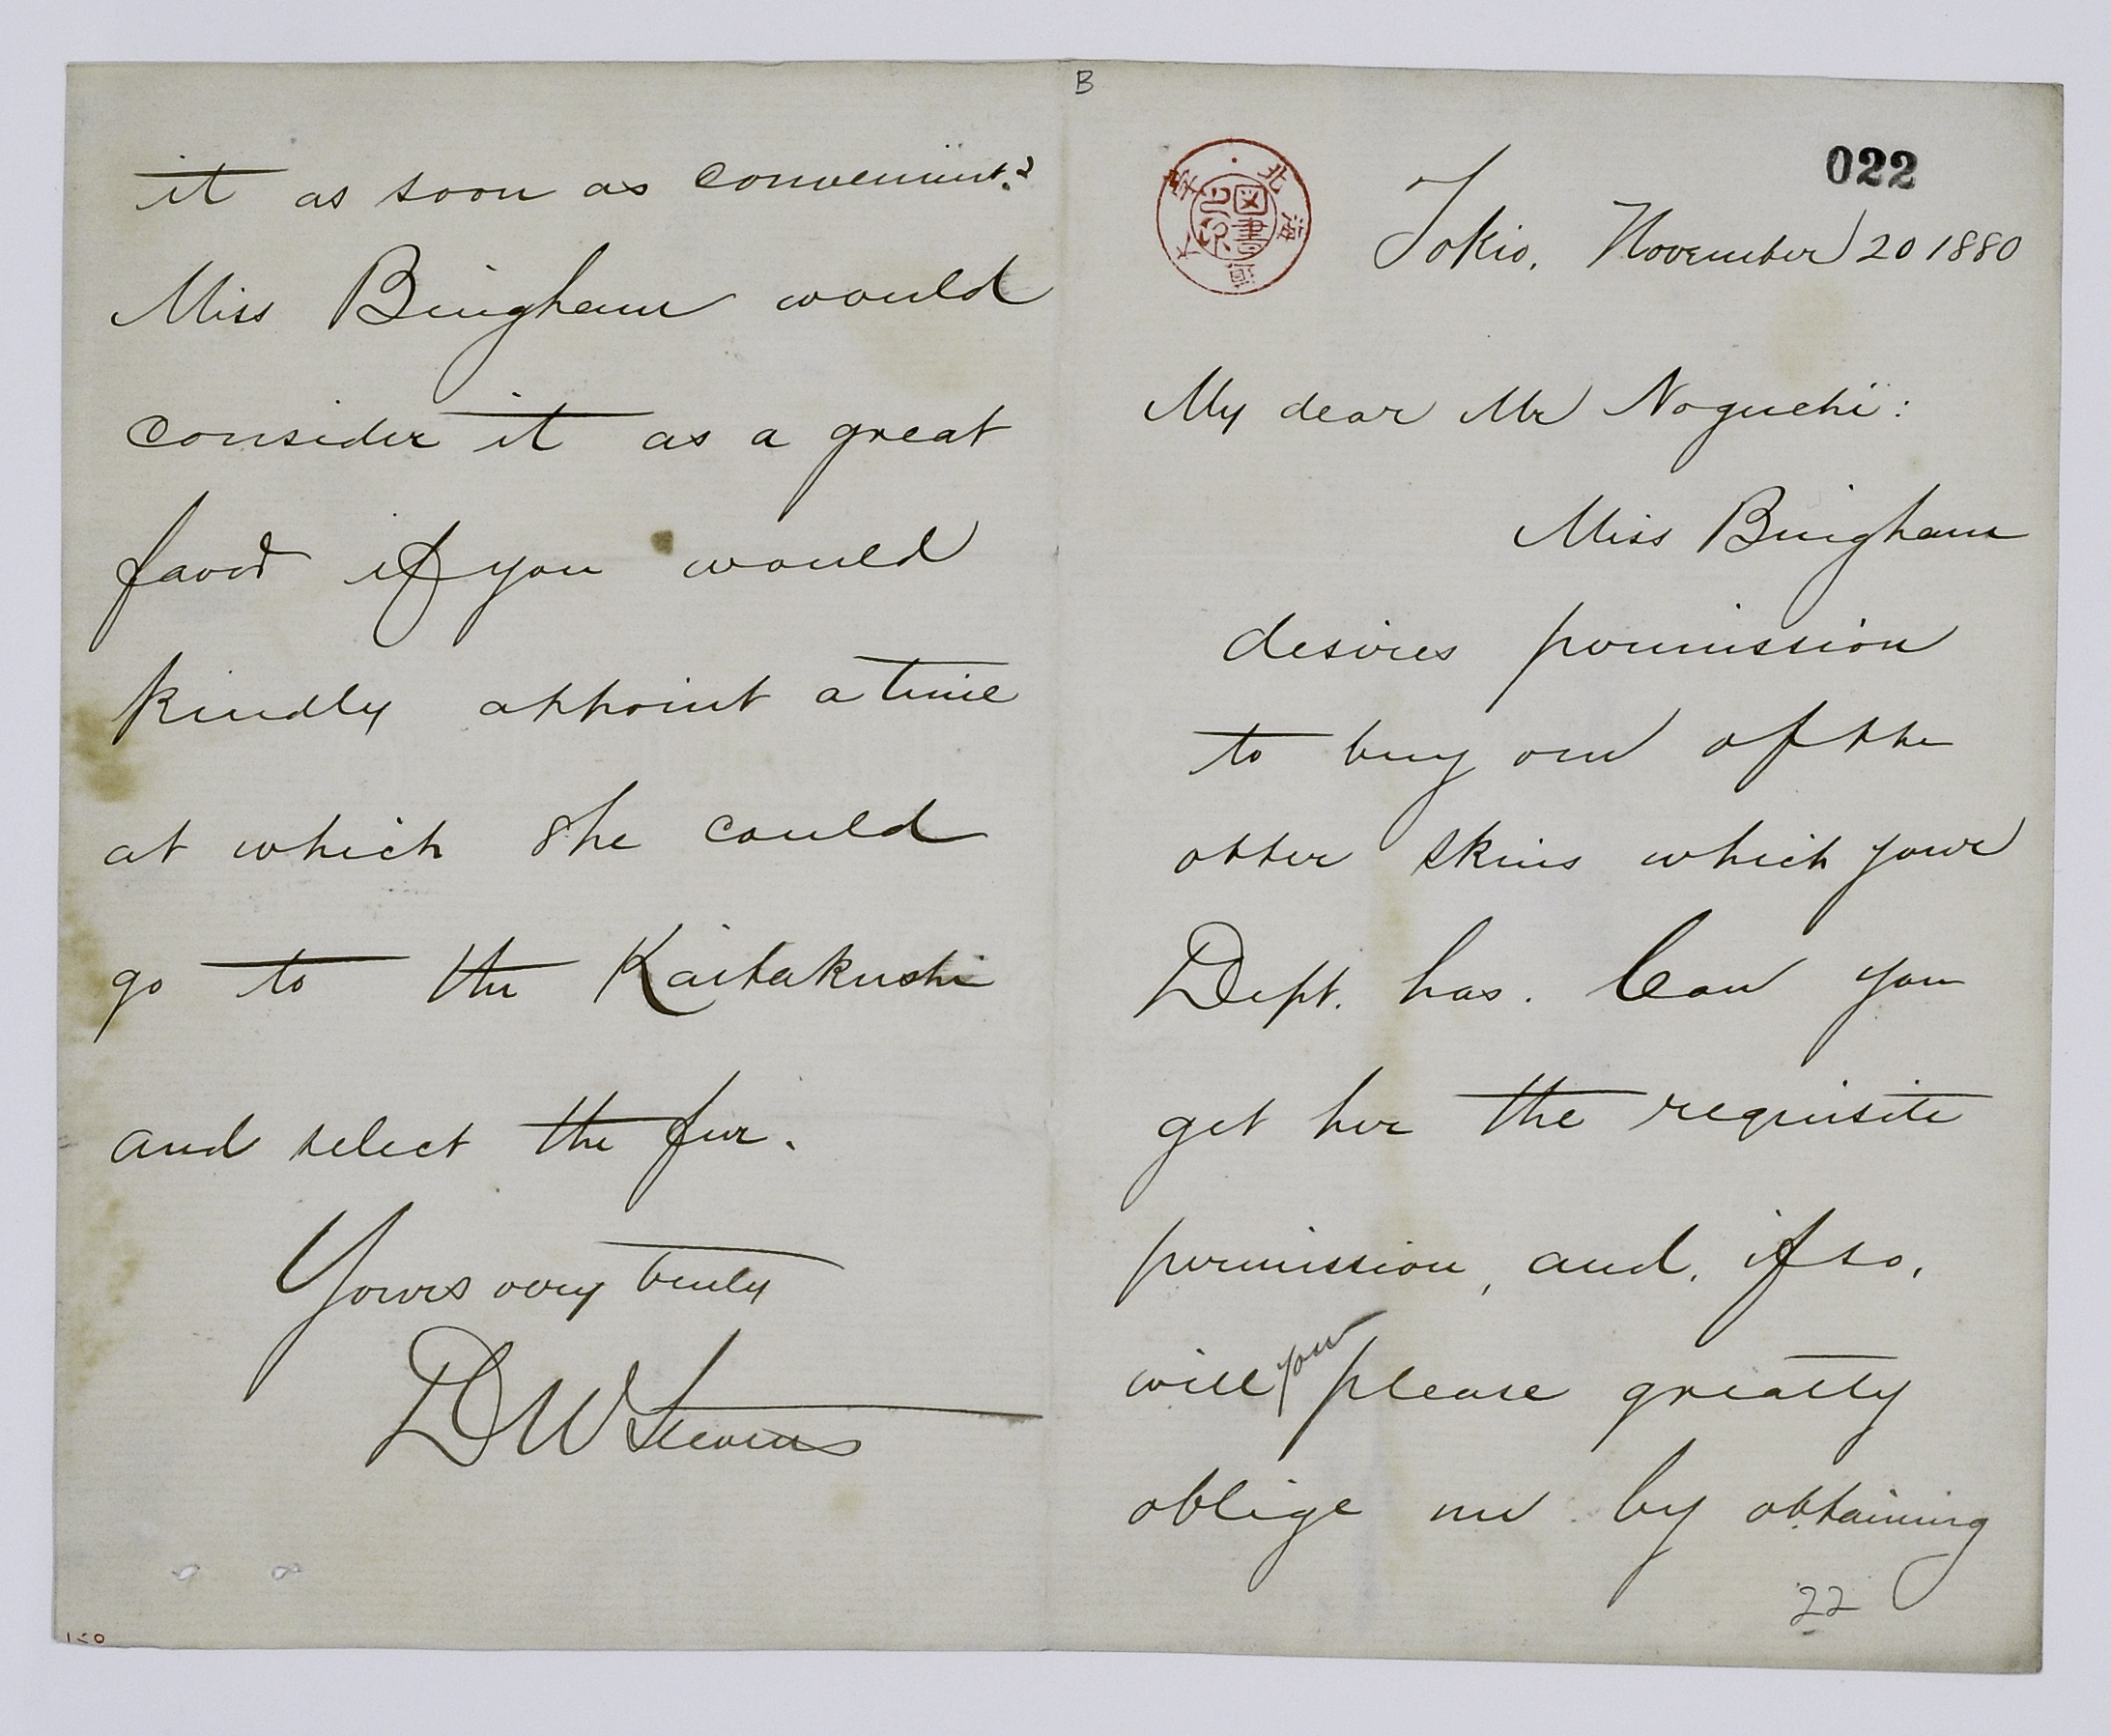 B
022
北海道大学
図書之印
Tokio, November 20 1880
My dear Mr Noguchi:
Miss Bingham
desires permission
to buy one of the
otter skins which your
Dept. has. Can you
get her the requisite
permission, and, if so,
will you please greatly
oblige me by obtaining
22
it as soon as convenient?
Miss Bingham would
consider it as a great
favor if you would
kindly appoint a time
at which she could
go to the Kaitakushi
and select the fur.
Yours very truly
D W Stevens
150